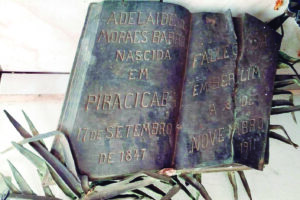 ADELAIDE
MORAES BAR
NASCIDA
EM
PIRACICAB
17 DE SETEMBRO
DE 1847
FALLE
EM
A DE
NOVEMBRO